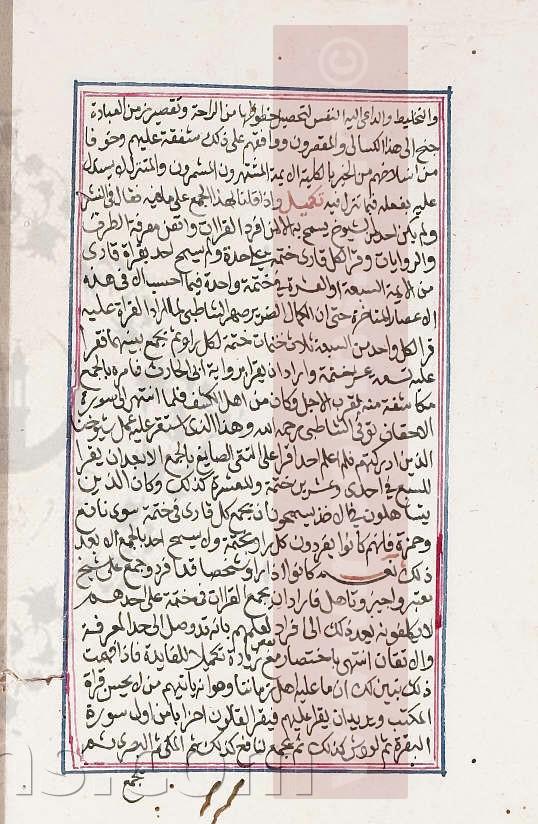 والتخليط والداعى اليه النفس لتحصيل حظوظها من الراحة وتقصير زمن العبادة
جنح الى هذا الكسالى والمقصرون ووافقهم على ذلك شفقة عليهم وخوفا
من انسلاخهم من الخير بالكلية الائمة المشتهرون المشمرون والمتنزل
عليه بفعله فيما تنزل فيه تكميل واذا قلنا بهذا الجمع على ما فيه فقال فى النشر
ولم يكن احد من الشيوخ يسمح به الا لمن افرد القراات واتقن معرفة الطرق
والروايات وقرا لكل قارى ختمة على حدة ولم يسمح احد بقراة قارى
من الايمة السبعة او العشرة فى ختمة واحدة فيما احسب الا فى هذه
الاعصار المتاخرة حتى ان الكمال الضرير صهر الشاطبى لما اراد القراة عليه
قرا لكل واحد من السبعة ثلاث ختمات ختمة لكل راو ثم يجمع بينهما فقرا
عليه تسعة عشر ختمة واراد ان يقرا برواية ابى الحارث فامره بالجمع
مكاشفة منه بقرب الاجل وكان من اهل الكشف فلما انتهى الى سورة
الاحقاف توفى الشاطبى رحمه الله وهذا الذى استقر عليه عمل شيوخنا
الذين ادركتهم فلم اعلم احدا قرا على التقى الصايغ بالجمع الا بعد ان يقرا
للسبع فى احدى وعشرين ختمة وللعشرة كذلك وكان الذين
يتساهلون فى الاخذ يسمحون ان يجمع كل قارى فى ختمة سوى نافع
وحمزة فانهم كانوا يفردون كل راو بختمة ولا يسمح احد بالجمع الا بعد
ذلك نعم كانوا اذا راوا شخصا قد افرد وجمع على شيخ
معتبر واجيز وتاهل فاراد ان يجمع القراات فى ختمة على احدهم
لا يكلفونه بعد ذلك الى افراد لعلمهم بانه قد وصل الى حد المعرفة
والاتقان انتهى باختصار مع زيادة تكميلا للفايدة فاذا فهمت
ذلك تبين لك ان ما عليه اهل زماننا وهو انه ياتيهم من لا يحسن قراة
المكتب ويريد ان يقرا عليهم فيقرا لقالون احزابا من اول سورة
البقرة ثم لورش كذلك ثم يجمع لنافع كذلك ثم المكى ثم البصرى ثم
يجمع